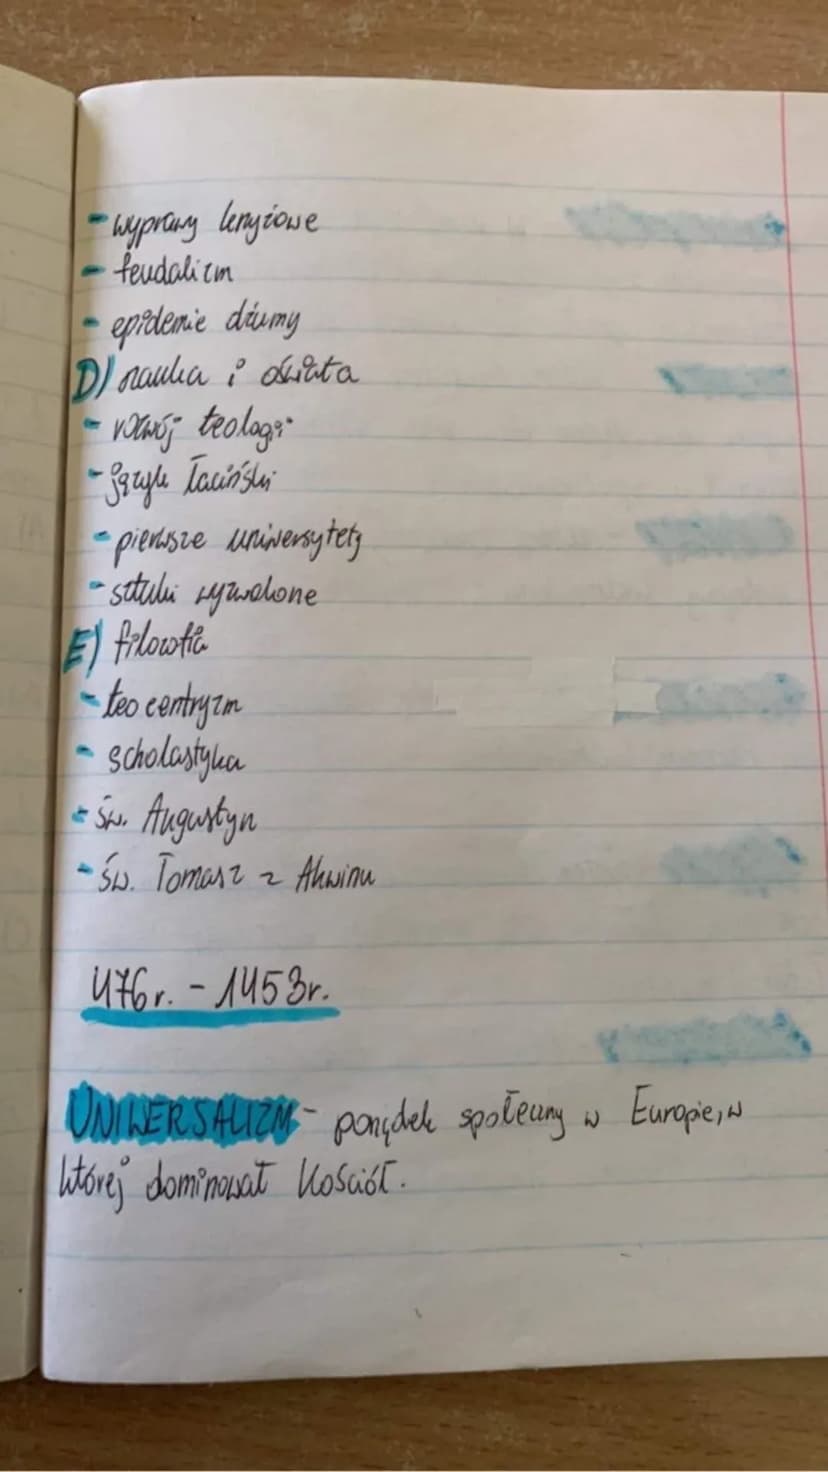 - wyprawy krzyżowe
- feudalizm
- epidemie dżumy
D) nauka i oświata
- rozwój teologii
- język łaciński
- pierwsze uniwersytety
- sztuki wyzwolone
E) filozofia
- teocentryzm
- scholastyka
- św. Augustyn
- św. Tomasz z Akwinu
476 r. - 1453 r.
UNIWERSALIZM - porządek społeczny w Europie, w
której dominował Kościół.